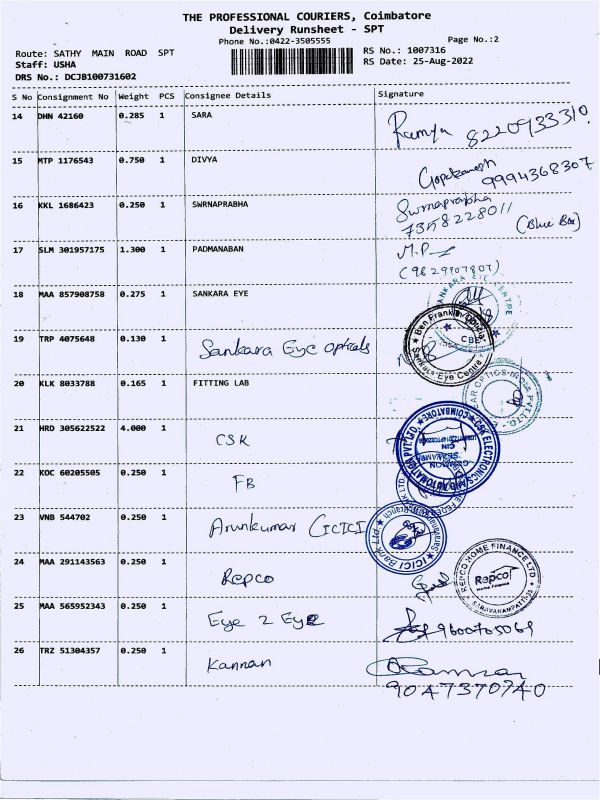 THE PROFESSIONAL COURIERS, Coimbatore
Delivery Runsheet - SPT
Phone No.:0422-3505555
Page No.:2
Route: SATHY MAIN ROAD SPT
RS No.: 1007316
Staff: USHA
RS Date: 25-Aug-2022
DRS No.: DCJB100731602
S No Consignment No Weight PCS Consignee Details Signature
14 DHN 42160 0.285 1 SARA Ramya 8220933310
15 MTP 1176543 0.750 1 DIVYA 9994368307
16 KKL 1686423 0.250 1 SWRNAPRABHA Swrnaprabha
7358228011 (Blue Box)
17 SLM 301957175 1.300 1 PADMANABAN M.P
18 MAA 857908758 0.275 1 SANKARA EYE
SANKARA EYE CENTRE
19 TRP 4075648 0.130 1 Sankara Eye opticals
Ben Franklin Optical
Sankara Eye Centre
CBE
20 KLK 8033788 0.165 1 FITTING LAB
21 HRD 305622522 4.000 1 CSK
CSK ELECTRONICS AND AUTOMATION PVT. LTD.
COIMBATORE
22 KOC 60205505 0.250 1 FB
23 VNB 544702 0.250 1 Arunkumar (ICICI
ICICI Bank Ltd.
24 MAA 291143563 0.250 1 Repco
REPCO HOME FINANCE LTD
Repco
Home Finance
SARAVANAMPATTI-35
25 MAA 565952343 0.250 1 Eye 2 Eye 9600765069
26 TRZ 51304357 0.250 1 Kannan
9047370740